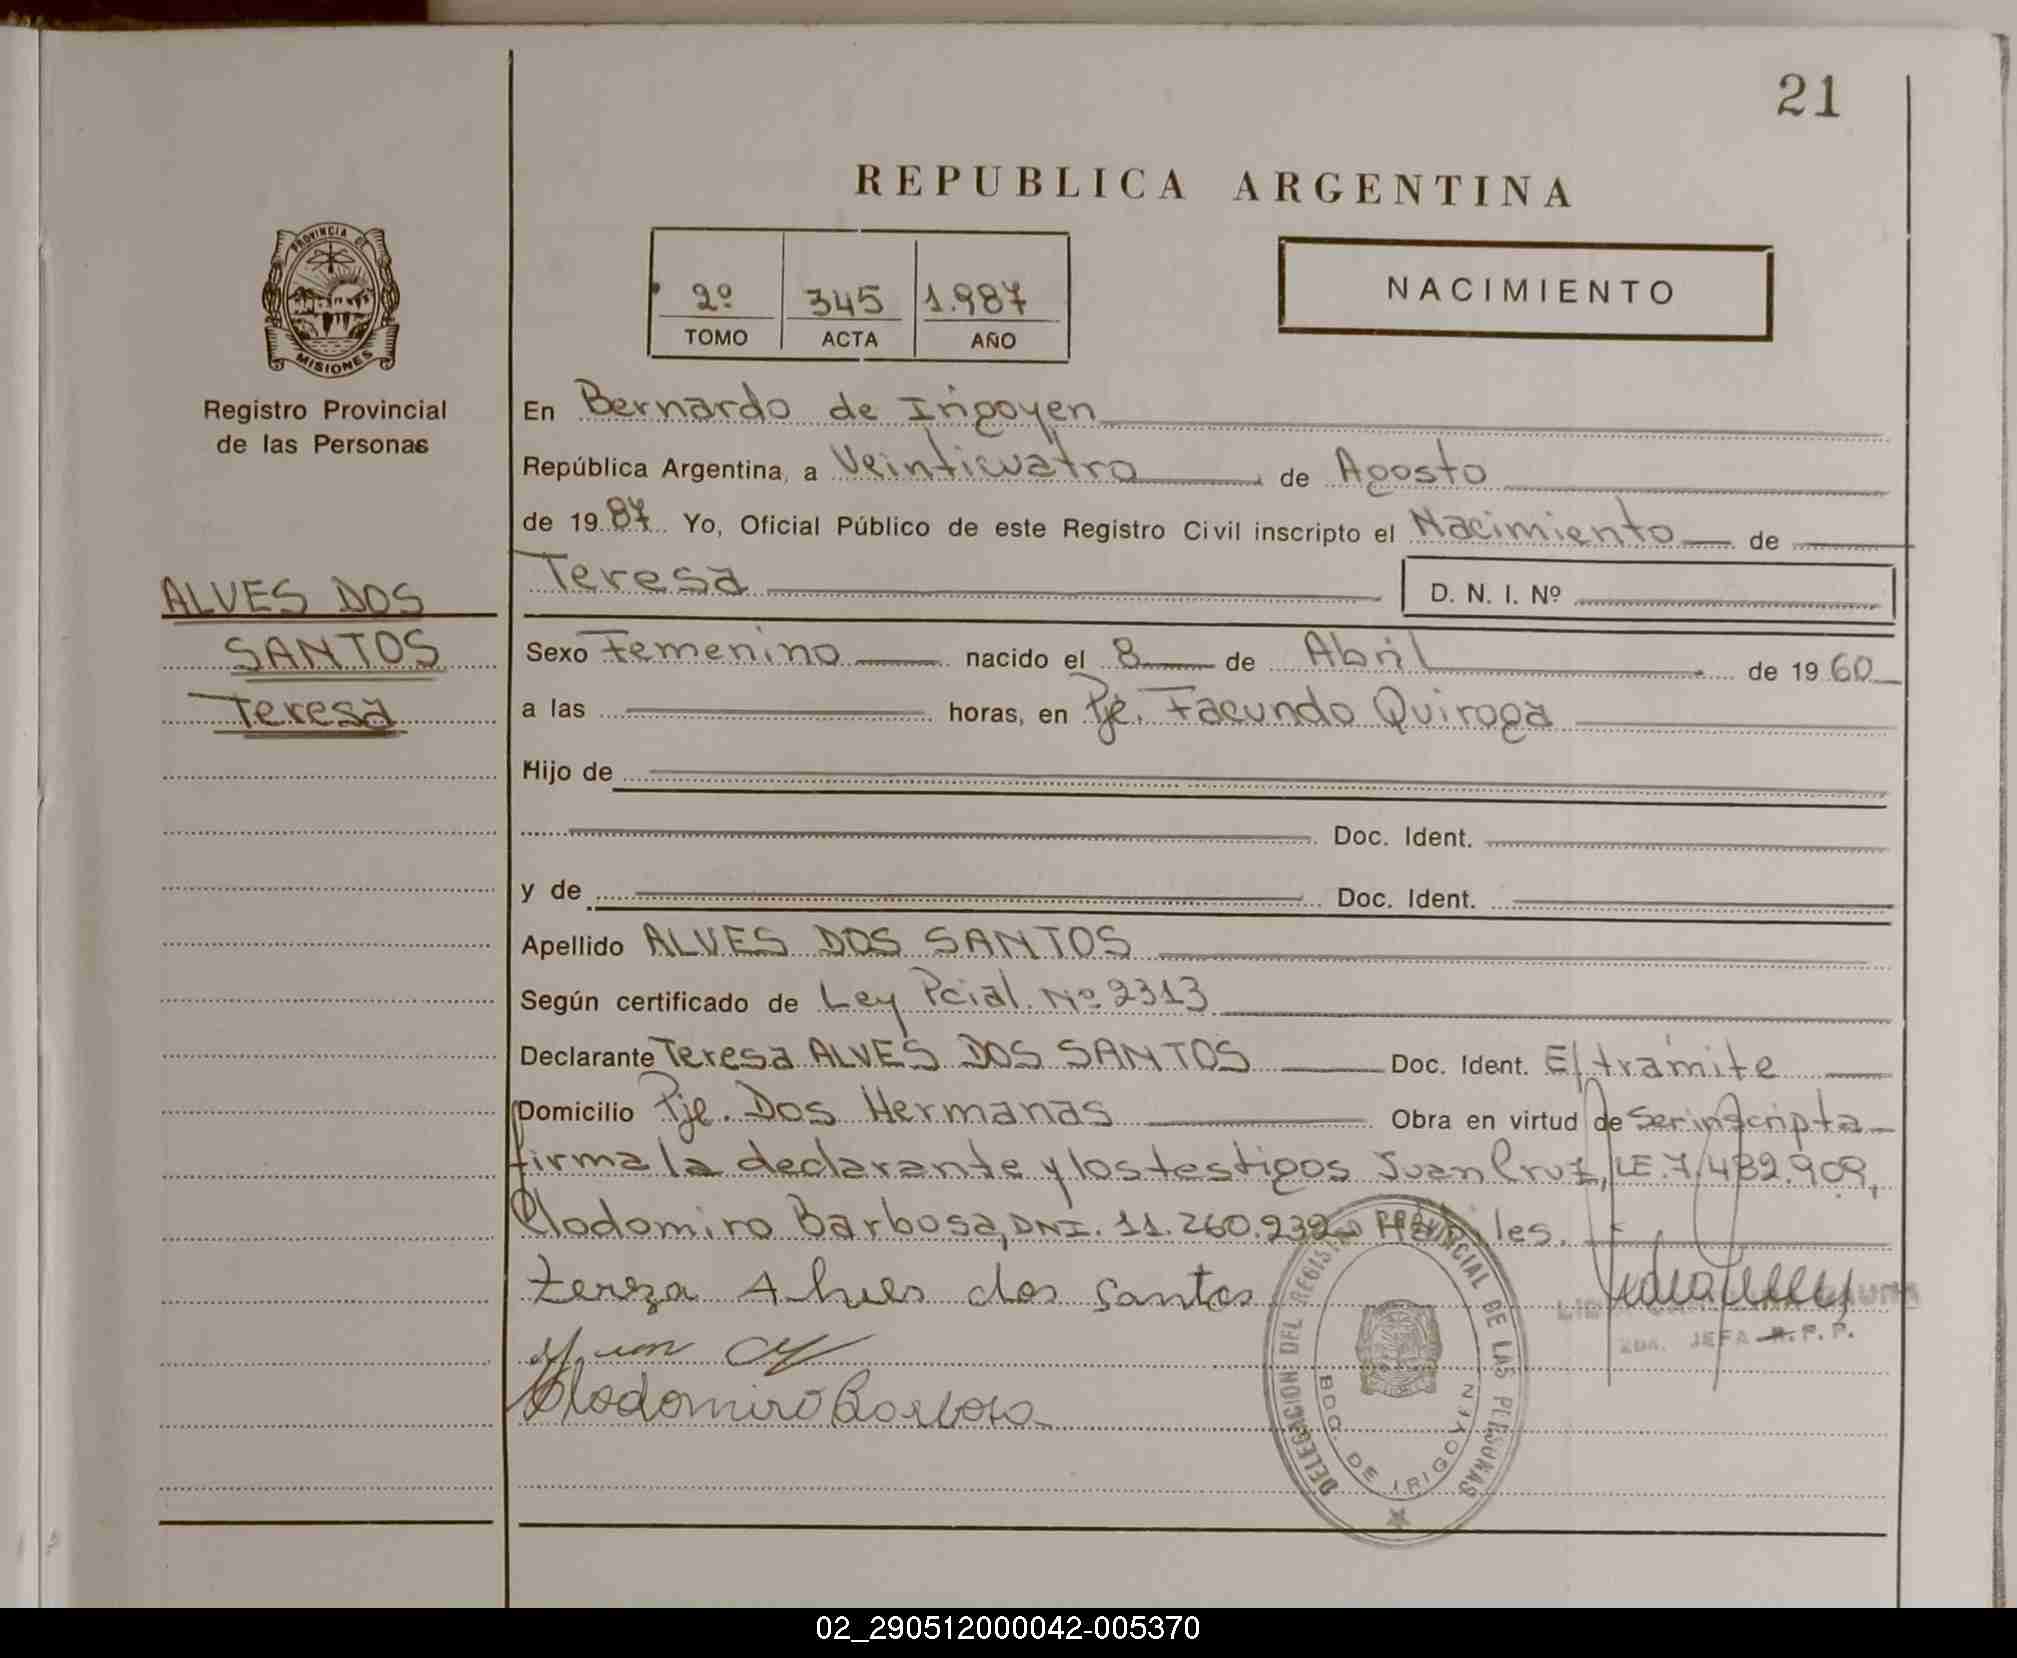 21
REPUBLICA ARGENTINA
PROVINCIA DE
MISIONES
Registro Provincial
de las Personas
2º 345 1.987
TOMO ACTA AÑO
NACIMIENTO
En Bernardo de Irigoyen
República Argentina, a Veinticuatro de Agosto
de 1987 Yo, Oficial Público de este Registro Civil inscripto el Nacimiento de
Teresa D. N. I. Nº
ALVES DOS
SANTOS
Teresa
Sexo Femenino nacido el 8 de Abril de 1960
a las horas, en Pje. Facundo Quiroga
Hijo de
Doc. Ident.
y de Doc. Ident.
Apellido ALVES DOS SANTOS
Según certificado de Ley Pcial. Nº 2313
Declarante Teresa ALVES DOS SANTOS Doc. Ident. E/trámite
Domicilio Pje. Dos Hermanas Obra en virtud de ser inscripta
firma la declarante y los testigos Juan Cruz, LE. 7.482.909,
Clodomiro Barbosa, DNI. 11.260.232 Hábiles.
tereza Alves dos santos
Juan
Clodomiro Barbosa
2DA. JEFA R. P. P.
DELEGACION DEL REGISTRO PROVINCIAL DE LAS PERSONAS
BDO. DE IRIGOYEN
02_290512000042-005370